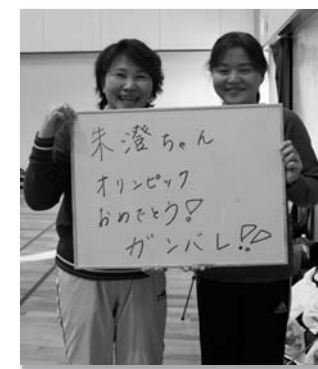 朱澄ちゃん
オリンピック
おめでとう!!
ガンバレ!!